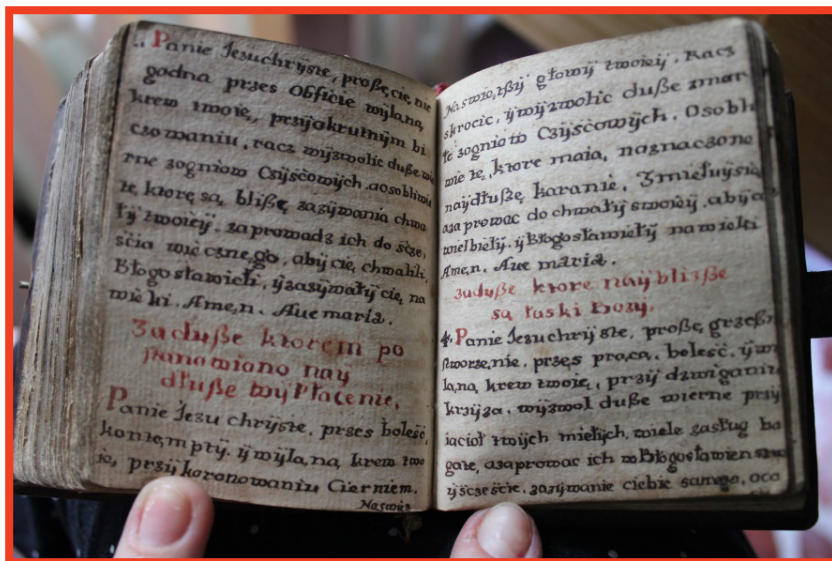 Panie Jezu chrÿste, proßę cię, nie
godna przes obficie wÿlaną
krew twoie, przÿokrutnÿm bi
czowaniu, racz wÿzwolic duße wie
rne zogniow Czÿścowÿch. aosobliwie
te, ktorę są, bliße zazÿwania chwa
łÿ twoieÿ. zaprowadz ich do scze,
ścia wiecznego, abÿ cię, chwalili,
Błogosławieli, ÿzazÿwałÿ cię, na
wieki. Amen. Aue maria.
Zaduße ktorem po
stanowiano naÿ
dłuße wÿPłacenie.
Panie Jezu chrÿste. przes boleść,
ÿwÿlaną krew two
ię, przÿ koronowaniu Cierniem.
Naswię
Naswiętßÿ głowÿ twoieÿ. Racz
skrocic, ÿwÿzwolic duße zmar
łe zogniow Czÿścowÿch. Osobli
wie te, ktore maia, naznaczone
naÿdłußę karanie, Zmiełuÿsię
azaprowac do chwałÿ swoieÿ, abÿ
wielbielÿ. ÿBłogosławielÿ nawieki
Amen. Aue maria.
zaduße ktore naÿblisße
są łaski Bozÿ.
4. Panie Jezu chrÿste, proßę, grzeßn
stworzenie, przes pracą, boleść, ÿwÿ
laną krew twoie, przÿ dzwiganiu
krzÿza. wÿzwol duße wierne przÿ
iacioł twoÿch miełÿch, wiele zasług bo
gate, azaprowac ich wBłogosławienstwo
ÿsczęście. zazÿwanie ciebie samego, oco